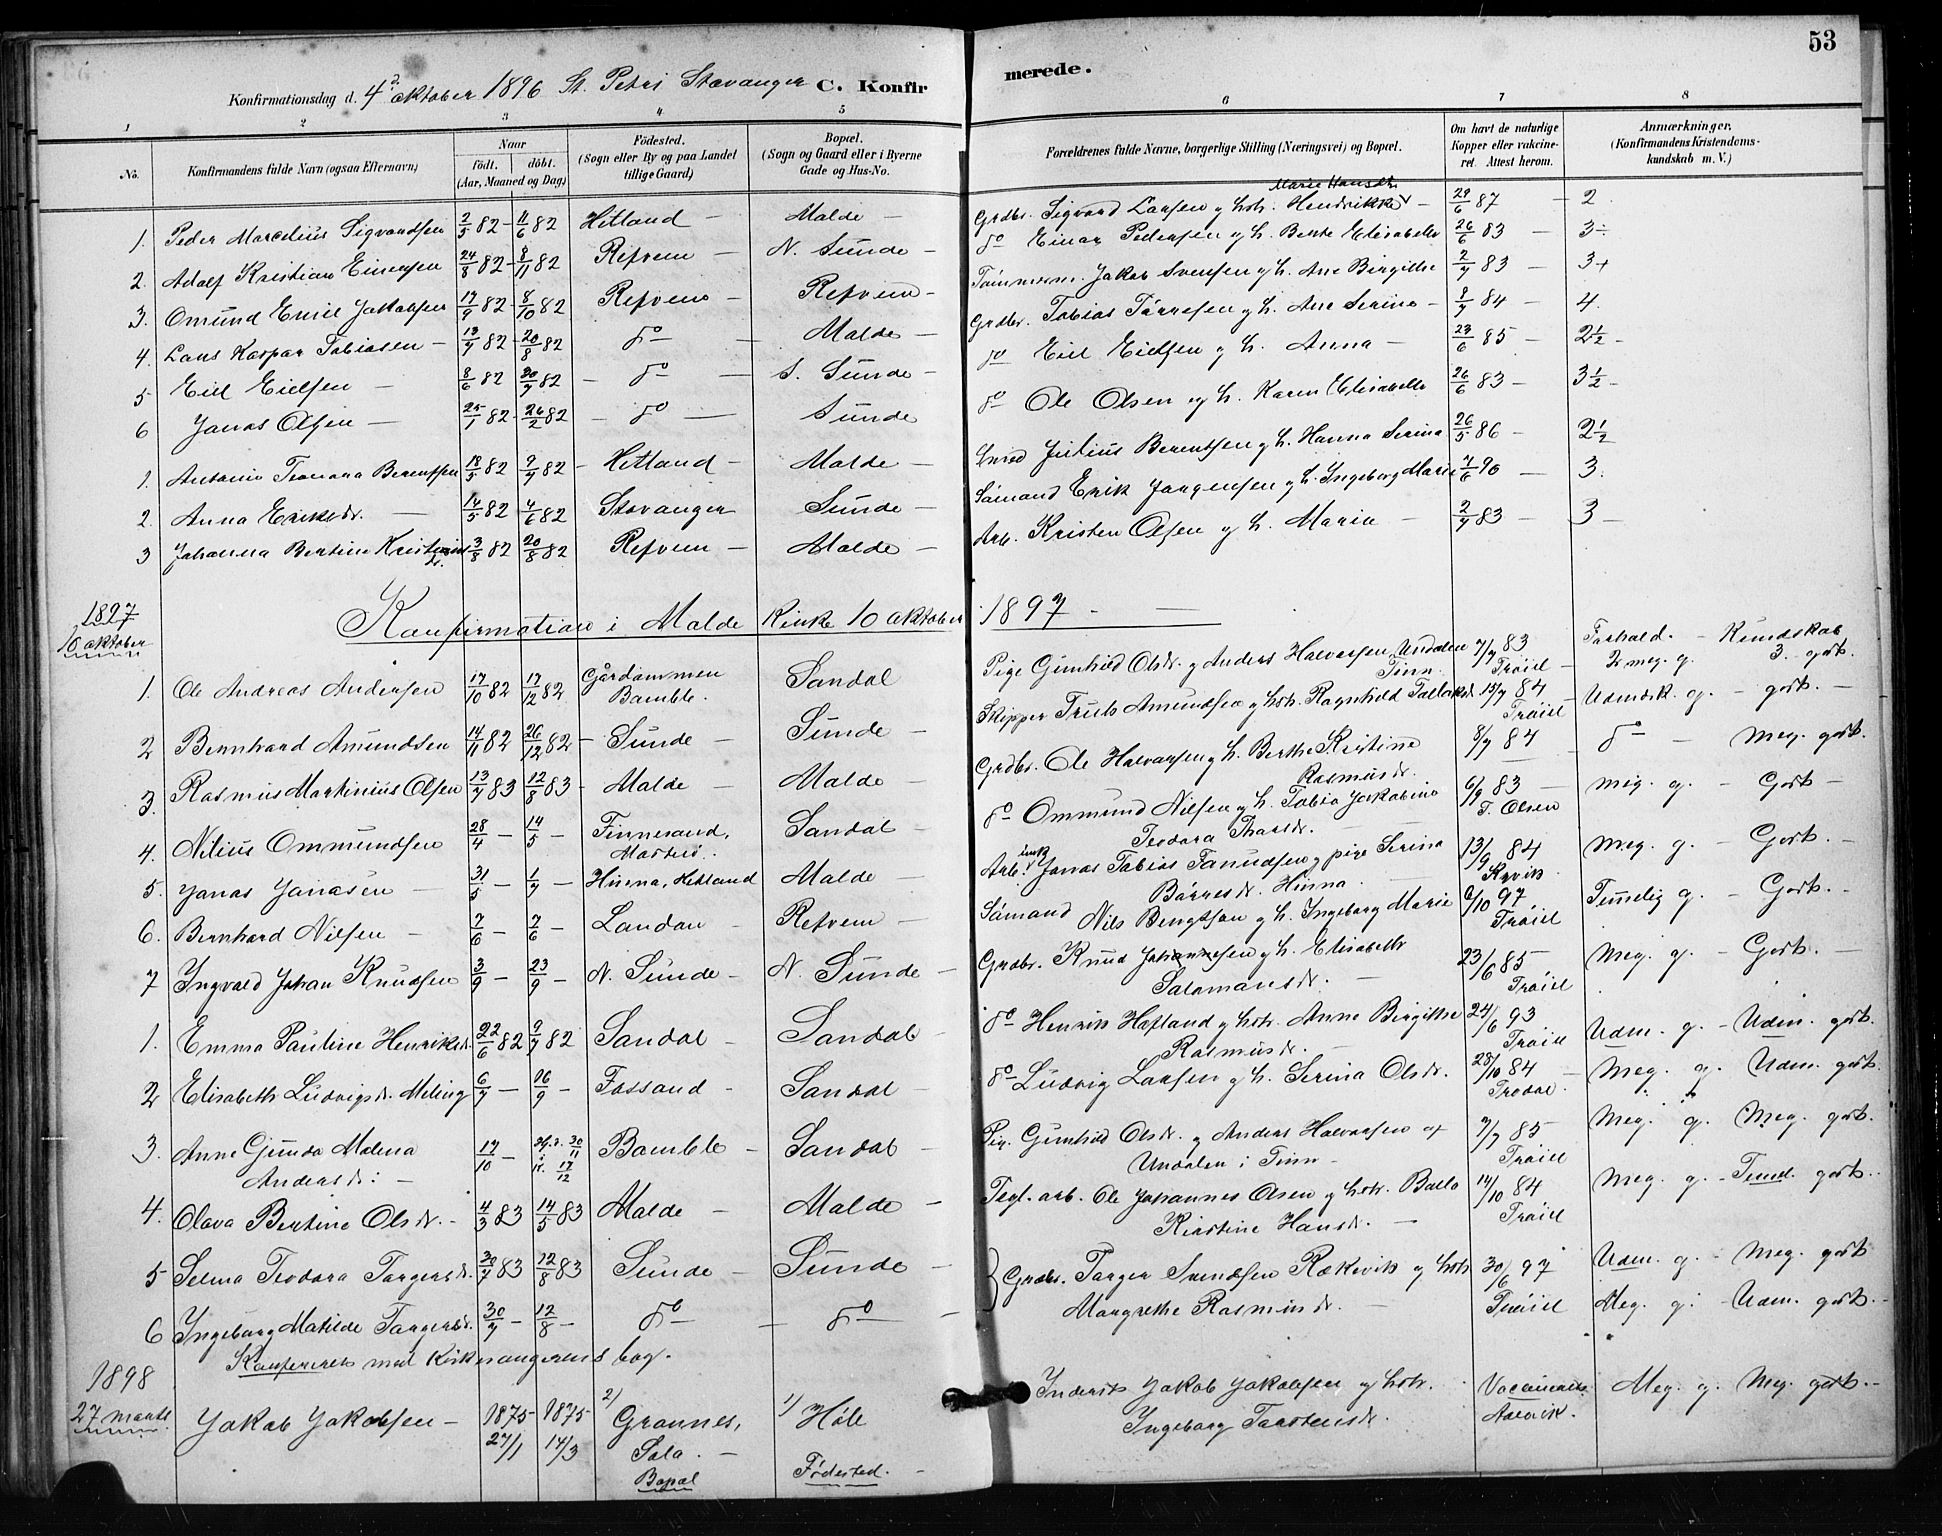 53
Konfirmationsdag d. 4de oktober 1896 St. Petri Stavanger C. Konfirmerede.
1 2 3 4 5 6 7 8
No. Konfirmandens fulde Navn (ogsaa Efternavn) Naar født. døbt. (Aar, Maaned og Dag) Fødested. (Sogn eller By og paa Landet tillige Gaard) Bopæl. (Sogn og Gaard eller i Byerne Gade og Hus-No. Forældrenes fulde Navne, borgerlige Stilling (Næringsvei) og Bopæl. Om havt de naturlige Kopper eller vakcineret. Attest herom. Anmærkninger. (Konfirmandens Kristendomskundskab m. V.)
1. Peder Marcelius Sigvardsen 2/5 82 - 11/6 82 Hetland - Malde - Grdbr. Sigvard Larsen og hstr. Marie Hansdr. 29/6 87 - 2
2. Adolf Kristian Einersen 24/8 82 - 8/11 82 Refvem - N. Sunde - do Einar Pedersen og h. Berte Elisabeth 26/6 83 - 3÷
3. Omund Emil Jakobsen 17/9 82 - 8/10 82 Refvem - Refvem - Tømmerm. Jakob Svensen og h. Ane Birgitte 2/7 83 - 3+
4. Lars Kaspar Tobiasen - 13/7 82 - 20/8 82 do - Malde - Grdbr. Tobias Tørresen og h. Ane Serina - 9/7 84 - 4.
5 Eiel Eielsen - 8/6 82 30/7 82 - do - S. Sunde - do Eiel Eielsen og h. Anna - 23/6 85 - 2½ -
6 Jonas Olsen - 25/1 82 - 26/2 82 - do - Sunde do Ole Olsen og h. Karen Elisabeth 26/6 83 - 3½ -
1. Antonie Teodora Berentsen 18/5 82 9/7 82 - Hetland - Malde - Smed Julius Berentsen og h. Hanna Serina 26/5 86 - 2½
2. Anna Eriksdr. - 14/5 82 4/6 82 Stavanger Sunde - Sømand Erik Jørgensen og h. Ingeborg Marie 7/6 90 - 3.
3 Johanna Bertine Kristensdr. 3/8 82 20/8 82 Refvem - Malde - Arb. Kristen Olsen og h. Maria - 2/7 83 - 3 -
1897 10 oktober Konfirmation i Malde Kirke 10 oktober 1897 -
1. Ole Andreas Andersen 17/10 82 17/12 82 Gårdammen Bamble. Sandal Pige Gunhild Olsdr. og Anders Halvorsen, Undalen Tinn. 7/7 83 Trøiel - Forhold. - Kundskab 2 meg. g. 3. godt.
2 Bernhard Amundsen 14/11 82 26/12 82 - Sunde - Sunde - Skipper Truls Amundsen og hstr. Ragnhild 15/7 84 Trøiel - Udmrk. g. - godt. -
3. Rasmus Martinius Olsen 13/7 83 12/8 83 - Malde - Malde - Grdbr. Ole Halvorsen og h. Berthe Kristine Rasmusdr. 8/7 84 do - Meg. godt.
4. Nilius Ommundsen 28/4 - 14/5 - Finnesand, Mosterø. Sandal - do Ommund Nilsen og h. Tobia Jakobine Teodora 6/9 83 - T. Olsen meg. g. - Godt -
5. Jonas Jonasen - 31/5 - 1/7 - Hinna, Hetland Malde - Arb. Jonas Tobias og pige Serina Hinna - 13/9 84 Meg. g. - Godt. -
6. Bernhard Nilsen - 2/6 - 7/6 - Landon - Refvem - Sømand Nils Bengtsen og h. Ingeborg Marie 6/10 97 Trøiel Temelig g. - Godt. -
7 Ingvald Johan Knudsen 3/9 - 23/9 - N. Sunde - N. Sunde - Grdbr. Knud Johannesen og h. Elisabeth Salomonsdr. - 23/6 85 - Trøiel Meg. g. - Godt. -
1. Emma Pauline Henriksdr. 22/6 82 9/7 82 Sandal - Sandal - do Henrik Hafland og hstr. Anne Birgitte Rasmusdr. - 24/6 93 Trøiel Udm. g. - Udm. godt.
2 Elisabeth Ludvigsdr. Meling 6/7 - 16/9 - Fossand - Sandal do Ludvig Larsen og h. Serina Olsdr. 28/10 84 - Meg. g. Udm. godt.
3. Anne Gunda Malena Andersdr. - 17/10 - 30/11 17/12 Bamble - Sandal - Pig. Gunhild Olsdr. og Anders Halvorsen af Undalen i Tinn - 7/7 85 Trøiel Meg. g. Meg. godt.
4. Olava Bertine Olsdr. - 4/3 83 14/5 83 Malde - Malde - Tegl. arb. Ole Johannes Olsen og hstr. Kirstine Hansdr. - 14/10 84 Trøiel Meg. g. - Temel. godt.
5 Selma Teodora Torgersdr. 30/7 83 12/8 83 Sunde - Sunde - Grdbr. Torger Svendsen Rækevik og hstr Margrethe Rasmusdr. - 30/6 97 Trøiel Udm. g. - Meg. godt.
6 Ingeborg Matilde Torgersdr. 30/7 - 12/8 - do - do - Meg. g. - Udm. godt. -
Konfereret med Kirkesangerens bog.
1898 27 marts Jakob Jakobsen - 1875 27/1 1875 14/3 2) Grannes, Sola. - Bopæl 1) Hole Fødested. - Inderst Jakob Jakobsen og hstr. Ingeborg Torstensdr. Meg. g. Meg. godt. -